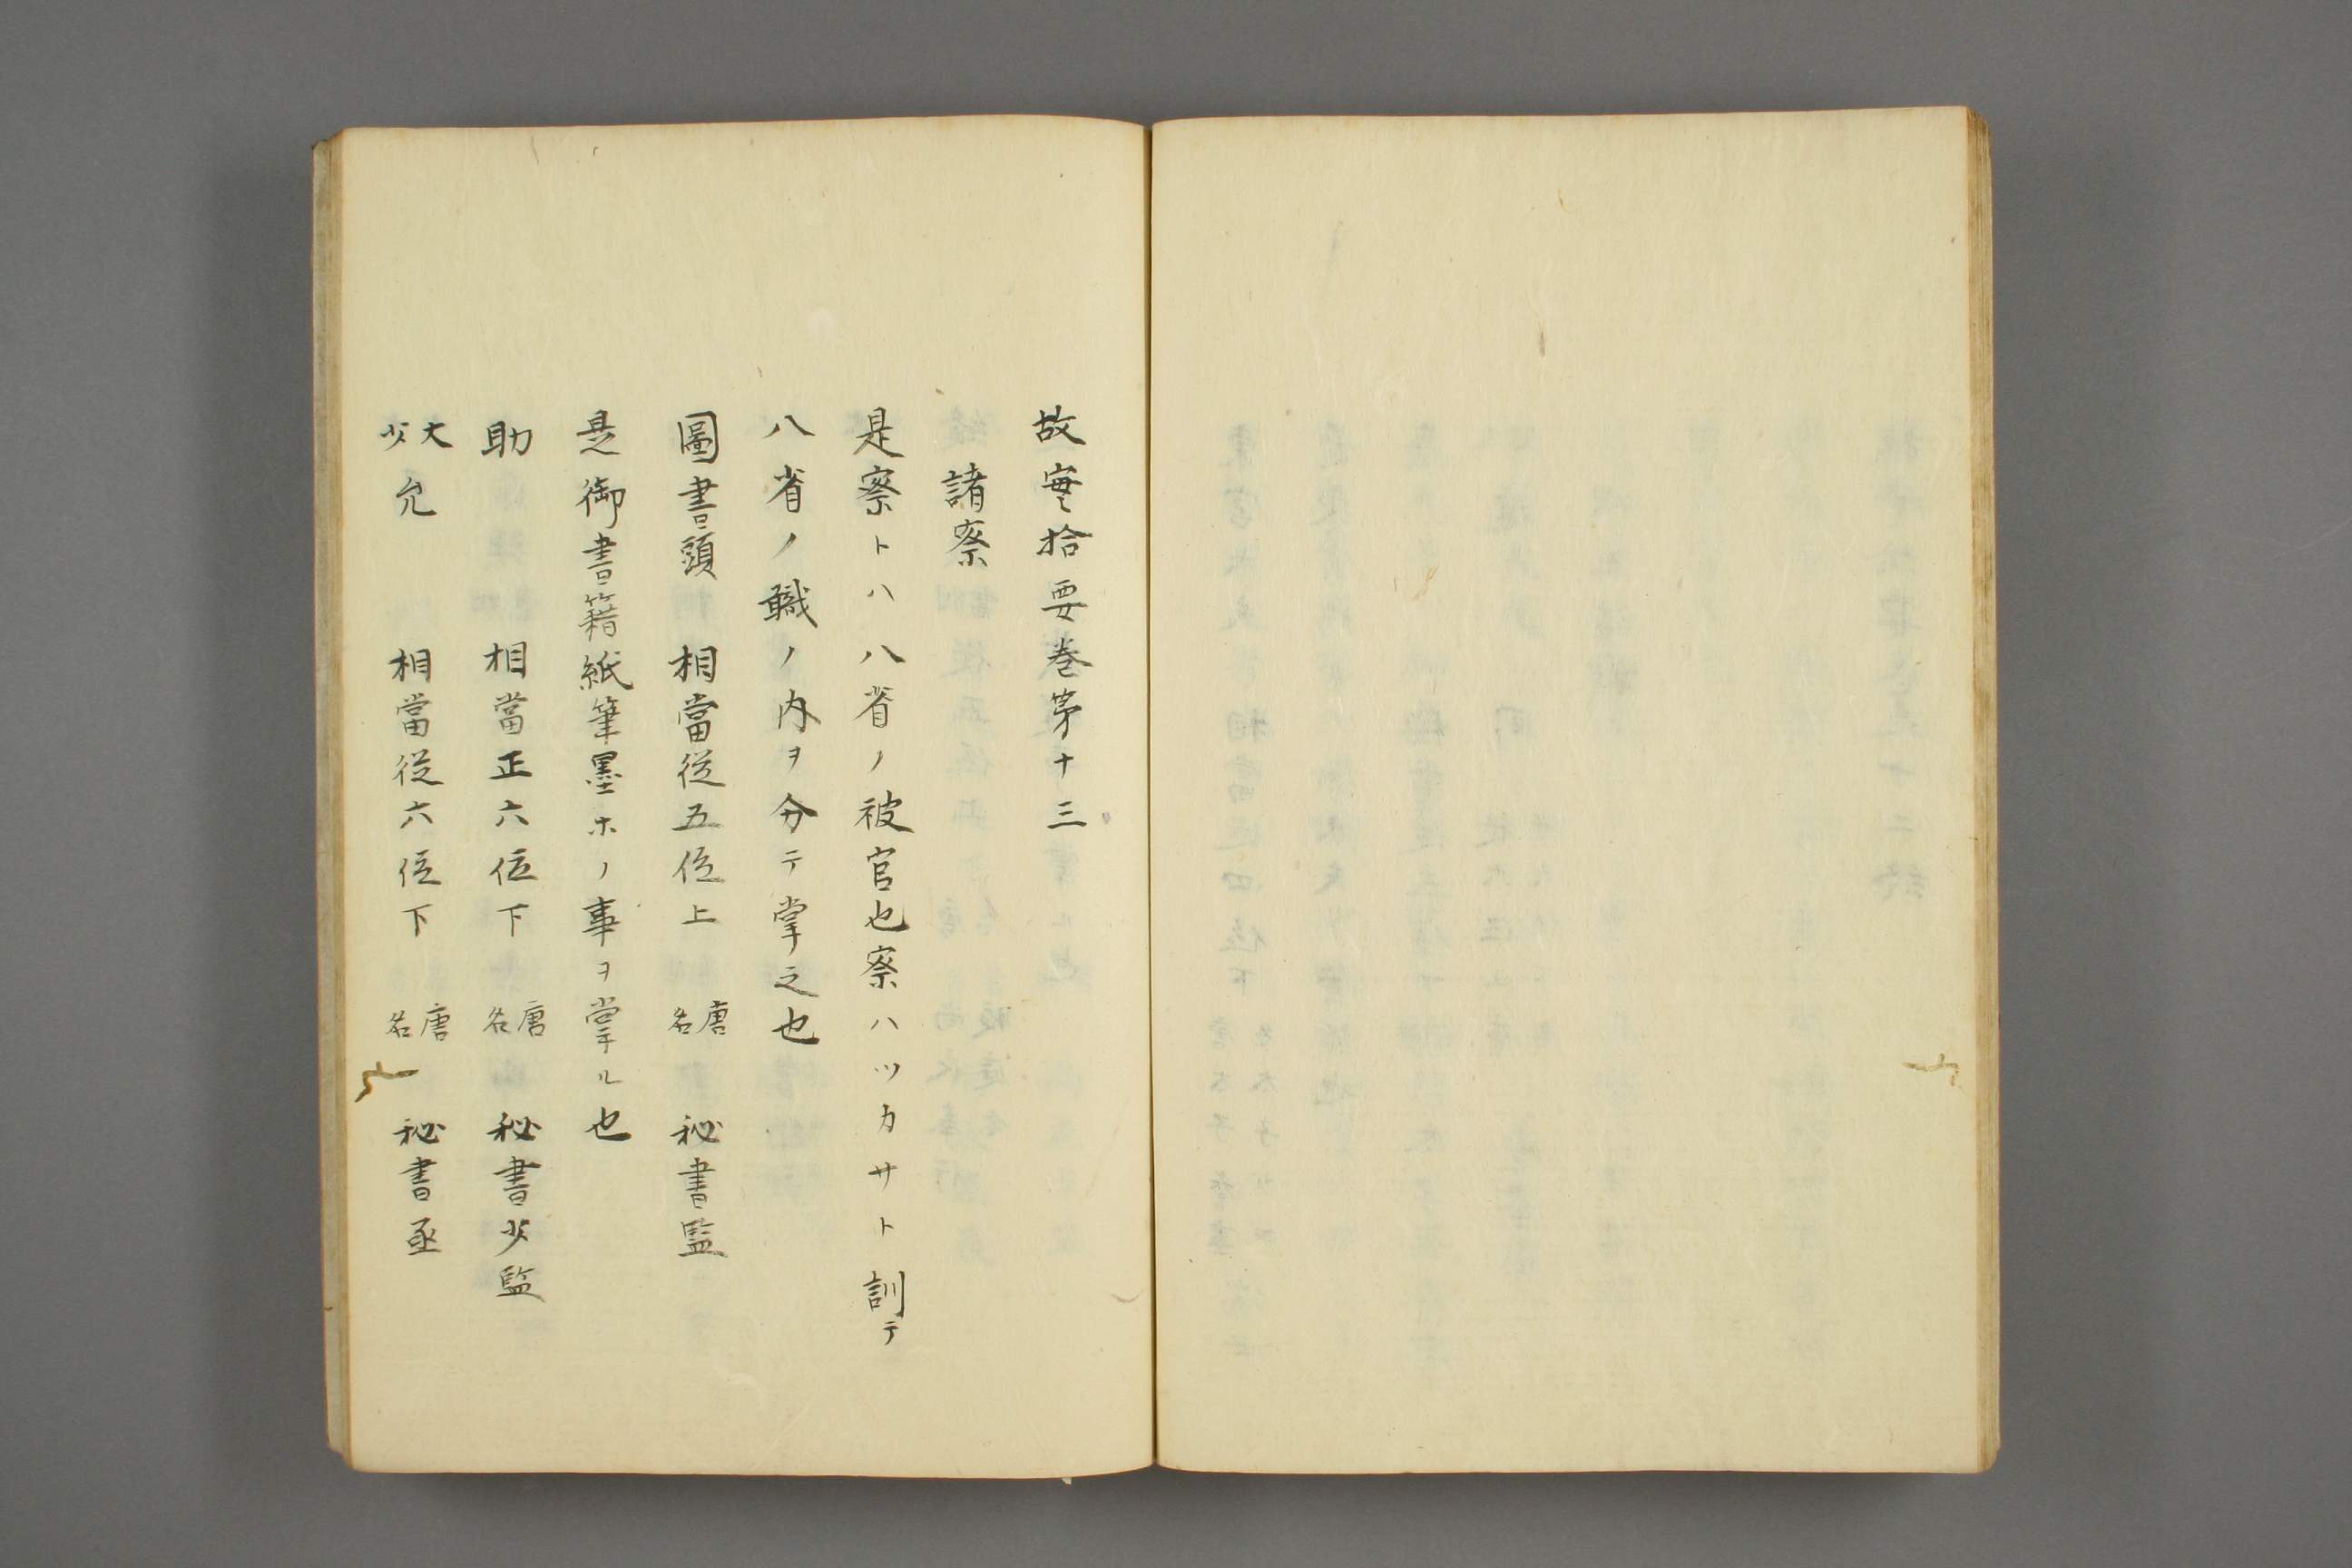 故実拾要巻第十三
諸寮
是寮トハ八省ノ被官也寮ハツカサト訓テ
八省ノ職ノ内ヲ分テ掌之也
圖書頭 相當従五位上 唐名 秘書監
是御書籍紙筆墨ホノ事ヲ掌ル也
助 相當正六位下 唐名 秘書少監
大少允 相當従六位下 唐名 秘書丞